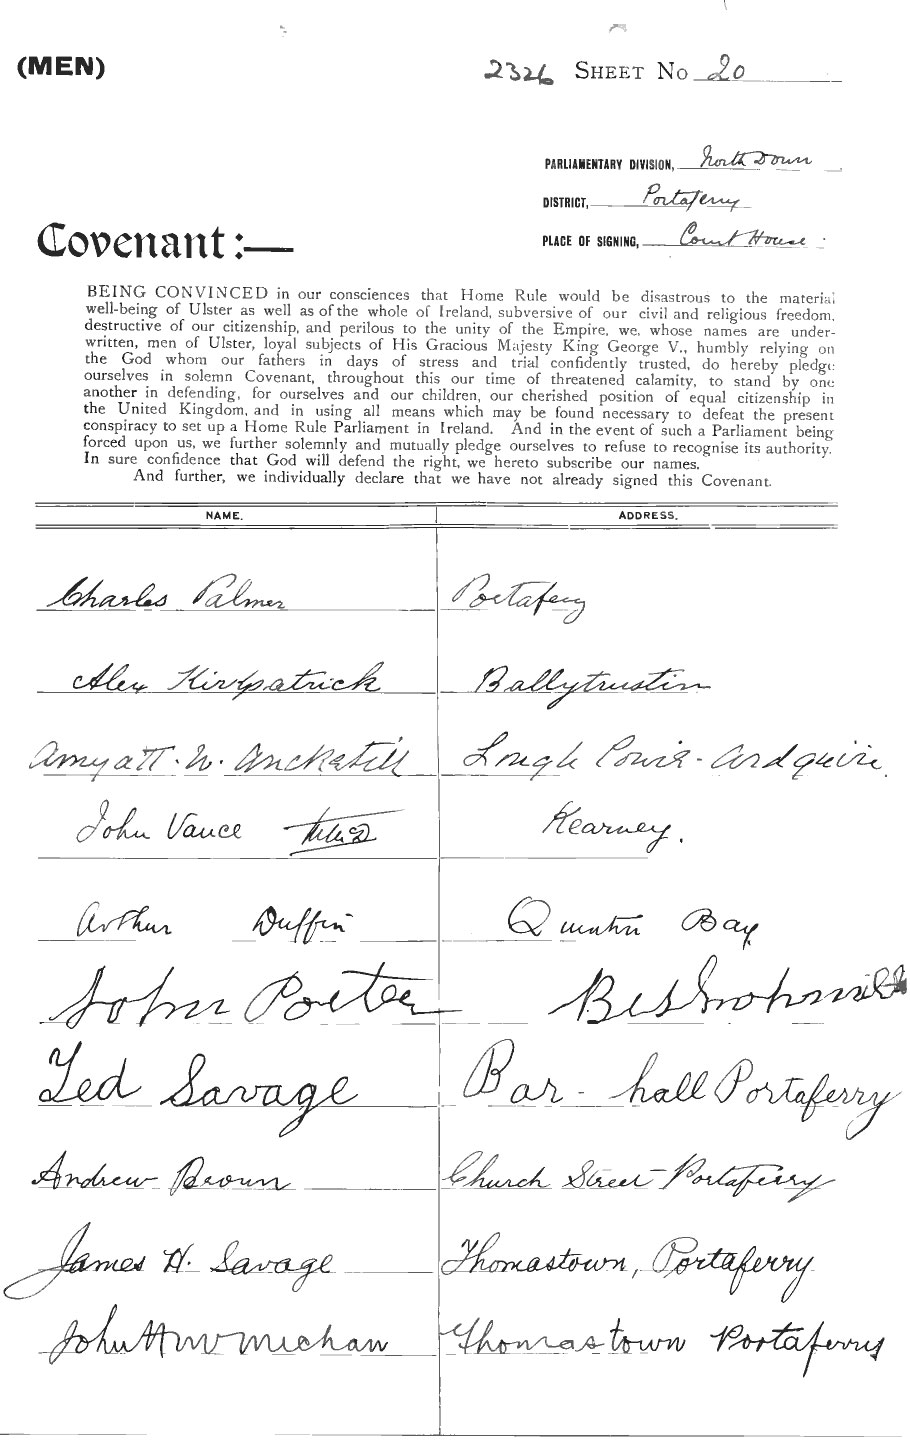 (MEN)
2326 SHEET No 20
PARLIAMENTARY DIVISION, North Down
DISTRICT, Portaferry
PLACE OF SIGNING, Court House
Covenant:—
BEING CONVINCED in our consciences that Home Rule would be disastrous to the material
well-being of Ulster as well as of the whole of Ireland, subversive of our civil and religious freedom,
destructive of our citizenship, and perilous to the unity of the Empire, we, whose names are under-
written, men of Ulster, loyal subjects of His Gracious Majesty King George V., humbly relying on
the God whom our fathers in days of stress and trial confidently trusted, do hereby pledge
ourselves in solemn Covenant, throughout this our time of threatened calamity, to stand by one
another in defending, for ourselves and our children, our cherished position of equal citizenship in
the United Kingdom, and in using all means which may be found necessary to defeat the present
conspiracy to set up a Home Rule Parliament in Ireland. And in the event of such a Parliament being
forced upon us, we further solemnly and mutually pledge ourselves to refuse to recognise its authority.
In sure confidence that God will defend the right, we hereto subscribe our names.
And further, we individually declare that we have not already signed this Covenant.
NAME. ADDRESS.
Charles Palmer Portaferry
Alex Kirkpatrick Ballytrustin
Amyatt. W. Anckatill Lough Cowie - Ardquin
John Vance Kearney.
Arthur Duffin Quintin Bay
John Porter
Ted Savage Bar-hall Portaferry
Andrew Brown Church Street Portaferry
James H. Savage Thomastown, Portaferry
John Thomastown Portaferry